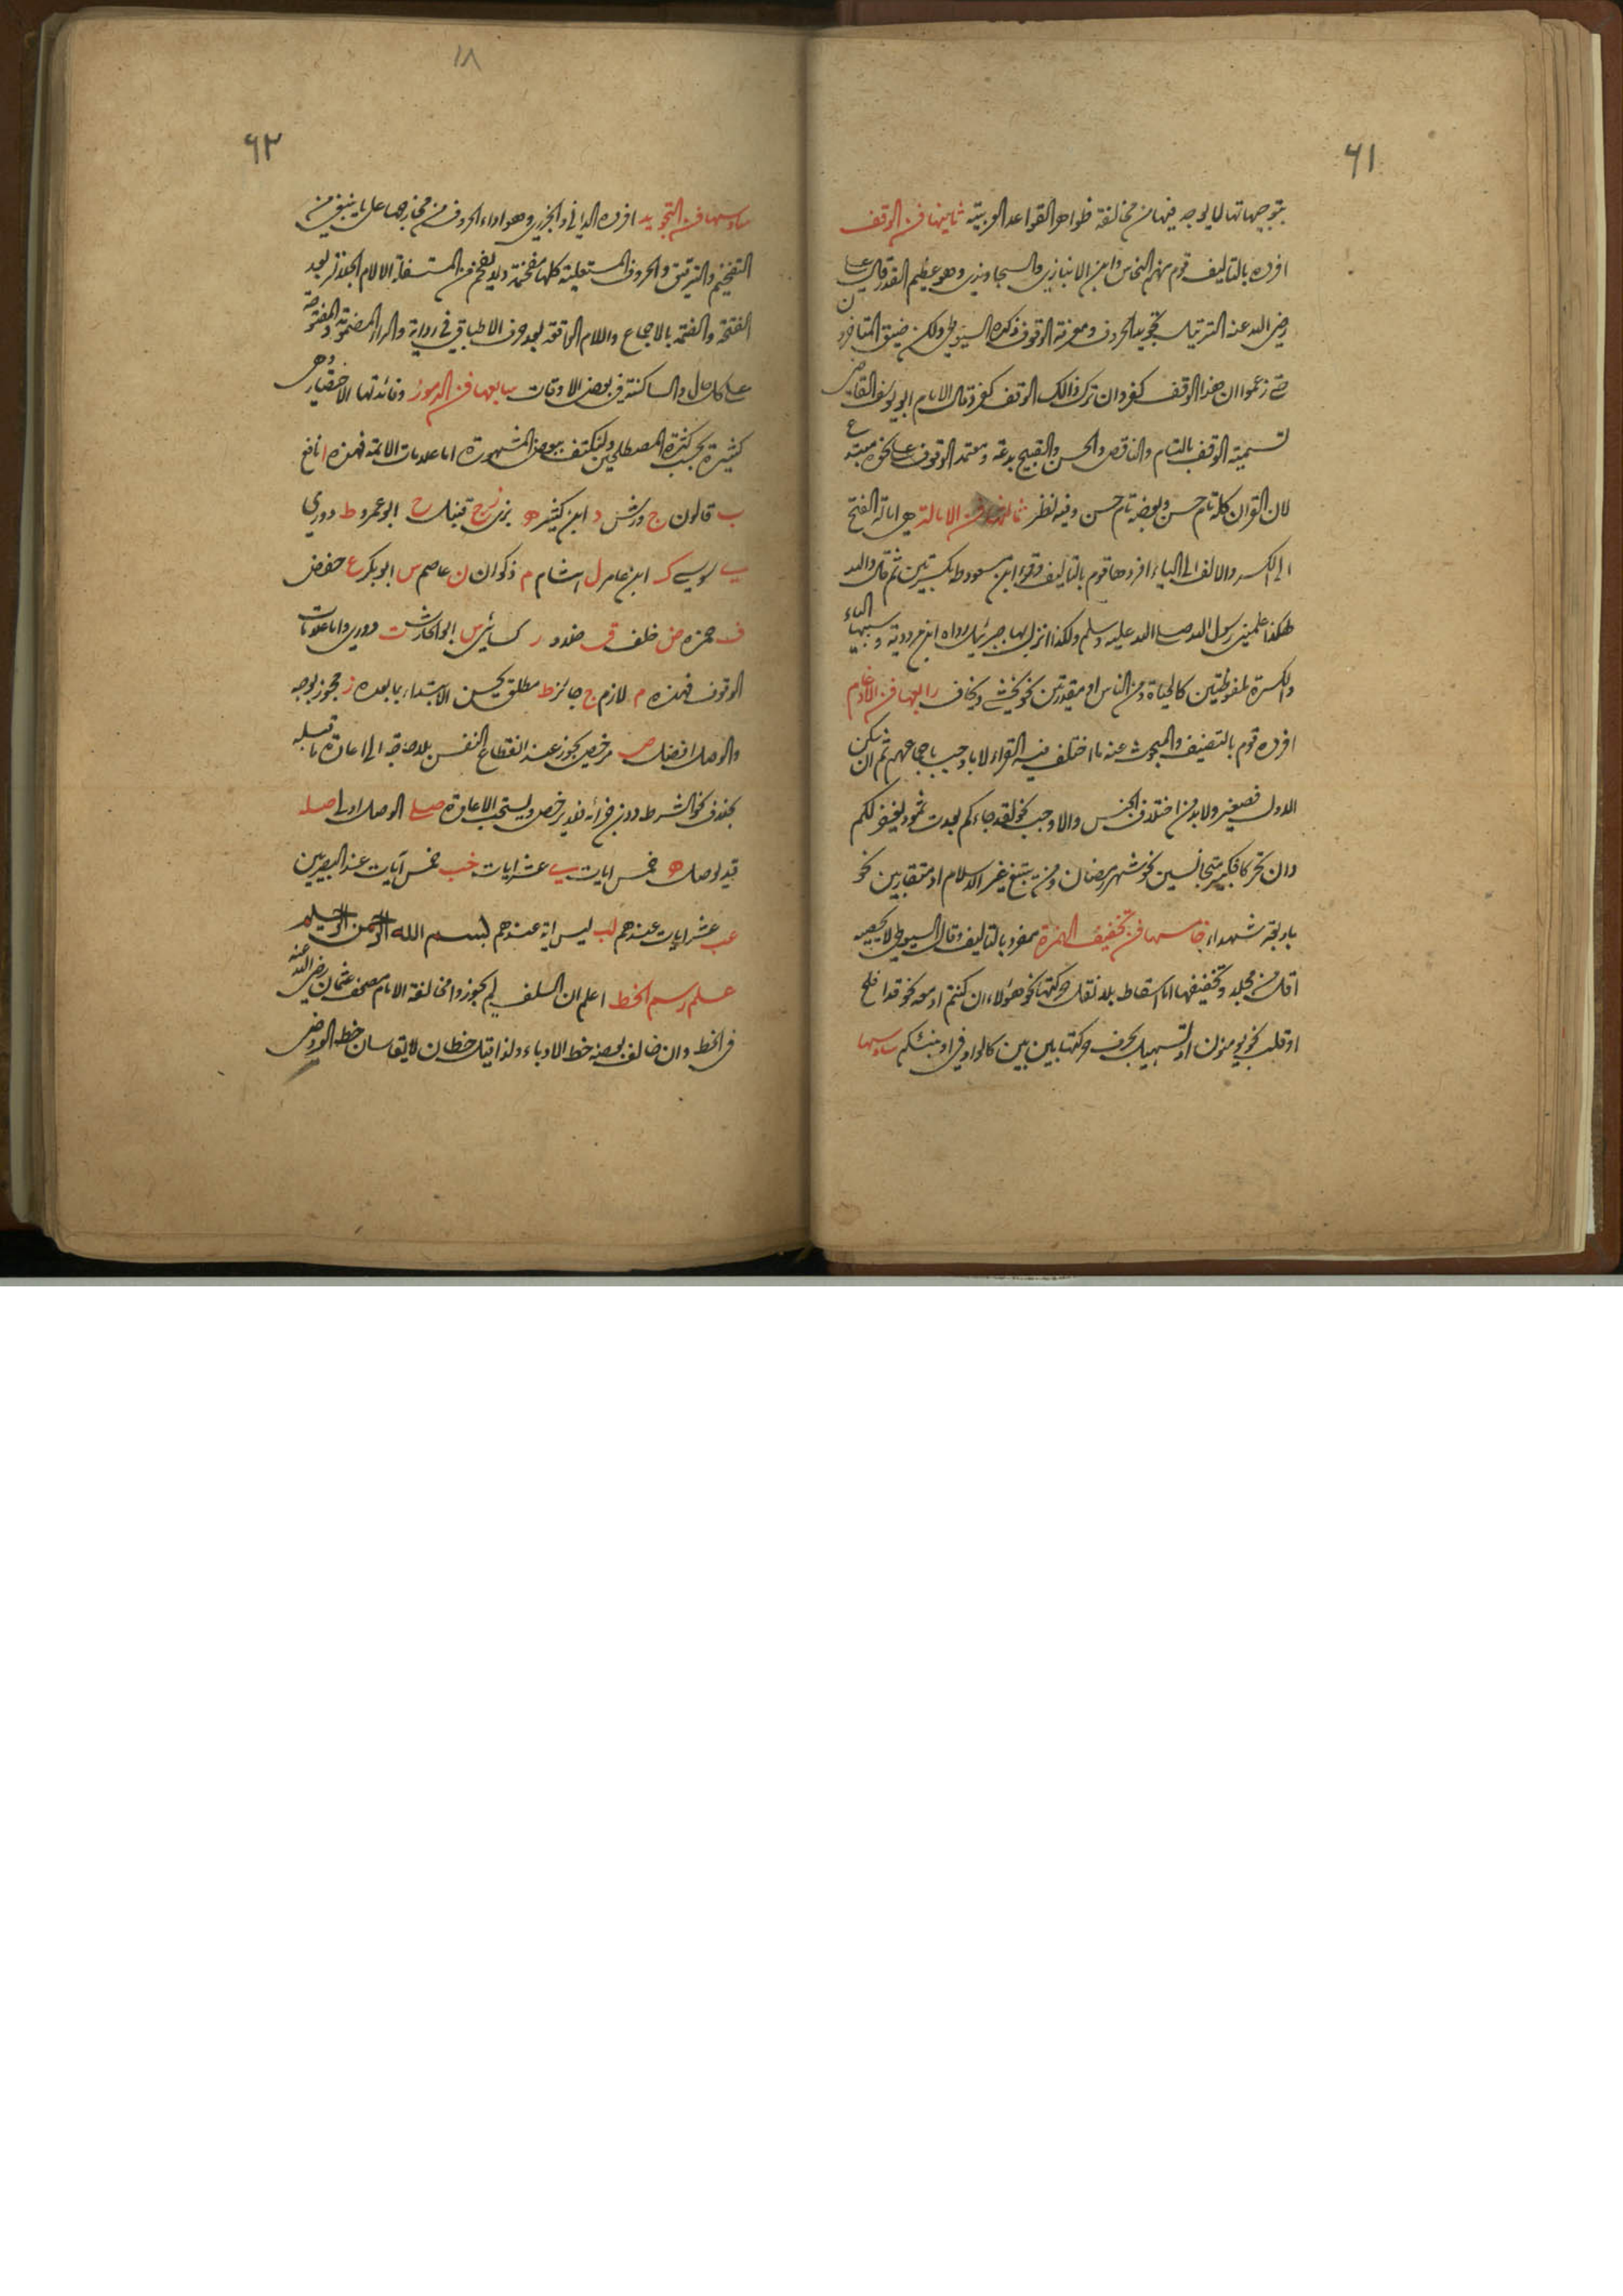 ٦١
بتوجيهاتها لما يوجد فيها من مخالفة ظواهر القواعد العربية ثانيها فن الوقف
افرده بالتاليف قوم منهم النحاس وابن الانباري والسجاوندي وهو عظيم القدر قال علي
رضي الله عنه الترتيل تجويد الحروف ومعرفة الوقوف ذكره السيوطي ولكن ضيق المتاخرون
حتى زعموا ان هذا الوقف كفر وان ترك ذالك الوقف كفر وقال الامام ابو يوسف القاضي
تسمية الوقف بالتام والناقص والحسن والقبيح بدعة ومتعمد الوقوف على نحوه مبتدع
لان القران كله تام حسن وبعضه تام حسن وفيه نظر ثالثها فن الامالة هي امالة الفتح
الى الكسر والالف الى الياء افردها قوم بالتاليف وقرء ابن مسعود طه بكسرتين ثم قال والله
هكذا علمني رسول الله صلى الله عليه وسلم ولكذا انزل بها جبرئيل رواه ابن مردوية وسببها الياء
والكسرة ملفوظتين كالحياة ومن الناس او مقدرتين نحو يخشى ويخاف رابعها فن الادغام
افرده قوم بالتصنيف والمبحوث عنه ما اختلف فيه القراء لا ما وجب باجماعهم ثم ان سكن
الاول فصغير ولا بد من اختلاف الجنس والا وجب نحو لقد جاءكم بعدت ثمود يغفر لكم
وان تحرك فكبير متجانسين نحو شهر رمضان ومن يبتغ غير الاسلام او متقاربين نحو
باربعة شهداء خامسها فن تخفيف الهمزة مفرد بالتاليف وقال السيوطي لا يحصيه
اقل من مجلد وتخفيفها اما اسقاط بلا نقل حركتها نحو هؤلاء ان كنتم او معه نحو قد افلح
او قلب نحو يومنون او تسهيل بحرف حركتها بين بين كالواو في اونبئكم سادسها
١٨
٦٢
سادسها فن التجويد افرده الداني والجزري وهو اداء الحروف من مخارجها على ما ينبغي من
التفخيم والترقيق والحروف المستعلية كلها مفخمة ولا يفخم من المستفلة الا لام الجلالة بعد
الفتحة والضمة بالاجماع واللام الواقعة بعد حرف الاطباق في رواية والراء المضمومة والمفتوحة
على كل حال والساكنة في بعض الاوقات سابعها فن الرموز وفائدتها الاختصار وهي
كثيرة بحسب كثرة المصطلحين ولنكتف ببعض المشهورة اما علامات الائمة فهذه ا نافع
ب قالون ج ورش د ابن كثير ه بزي ز قنبل ح ابو عمرو ط دوري
ي سوسي ك ابن عامر ل هشام م ذكوان ن عاصم س ابو بكر ع حفص
ف حمزه ض خلف ق خلاد ر كسائي س ابو الحارث ت دوري واما علامات
الوقوف فهذه م لازم ج جائز ط مطلق يحسن الابتداء بما بعده ز مجوز لوجه
والوصل افضل ص مرخص يجوز عند انقطاع النفس بلا حاجة الى اعادة ما قبله
بخلاف نحو الشرط دون جزائه فقد يرخص ويستحب الاعادة صلى الوصل اولى صل
قد يوصل ه خمس ايات ي عشر ايات خب خمس آيات عند البصريين
عب عشر ايات عندهم لب ليس اية عندهم بسم الله الرحمن الرحيم
علم رسم الخط اعلم ان السلف لم يجوزوا مخالفة الامام مصحف عثمان رضي الله عنه
في الخط وان خالف بعضه خط الادباء ولذا قيل خطان لا يقاسان خط العروض